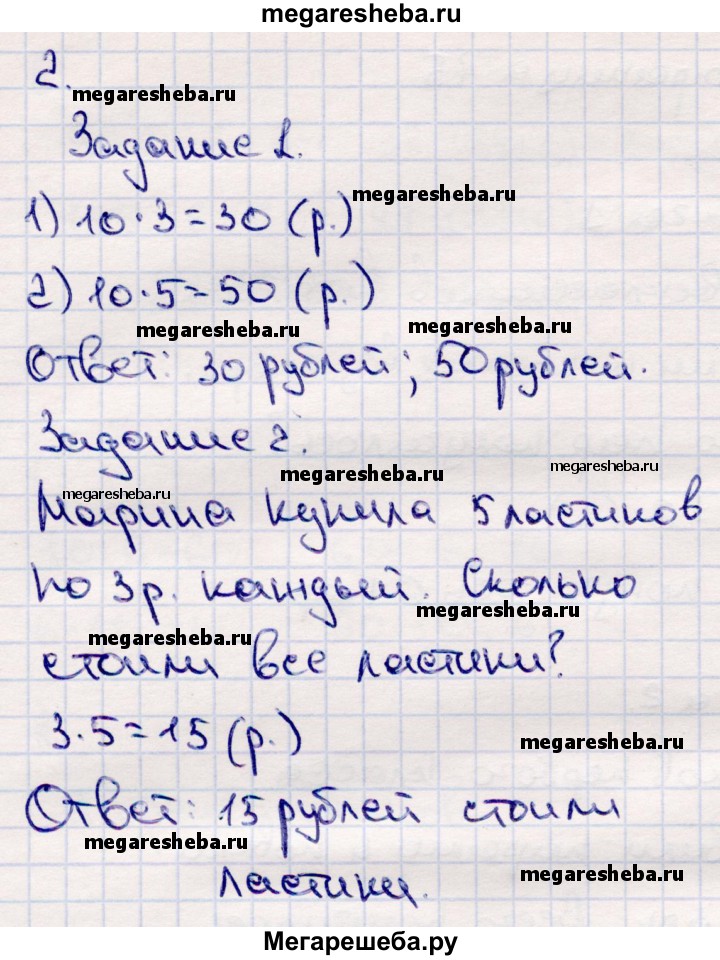 megaresheba.ru
2.
megaresheba.ru
Задание 1.
megaresheba.ru
1) 10·3=30 (р.)
2) 10·5=50 (р.)
megaresheba.ru
megaresheba.ru
Ответ: 30 рублей; 50 рублей.
Задание 2.
megaresheba.ru
megaresheba.ru
megaresheba.ru
Марина купила 5 ластиков
по 3 р. каждый. Сколько
megaresheba.ru
megaresheba.ru
стоили все ластики?
3·5=15 (р.)
megaresheba.ru
Ответ: 15 рублей стоили
megaresheba.ru
ластики.
megaresheba.ru
Мегарешеба.ру